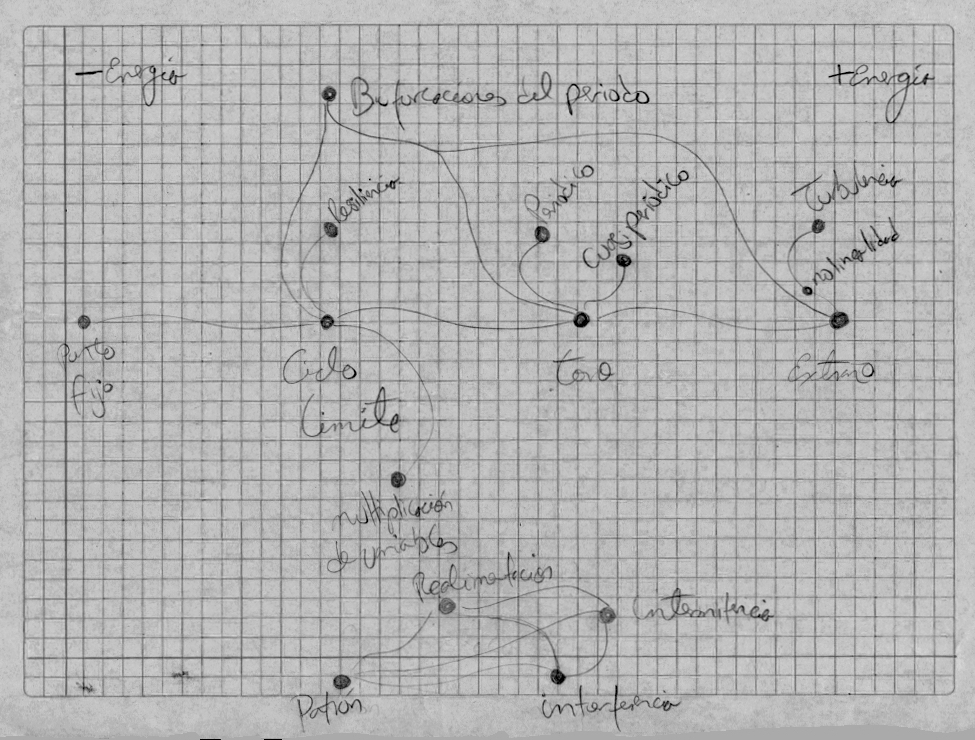 — Energía
+ Energía
Bifurcaciones del periodo
Resiliencia
Periódico
Cuasiperiódico
Turbulencia
nolinealidad
punto
fijo
Ciclo
Límite
Toro
Extraño
multiplicación
de variables
Realimentación
Intermitencia
Patrón
interferencia